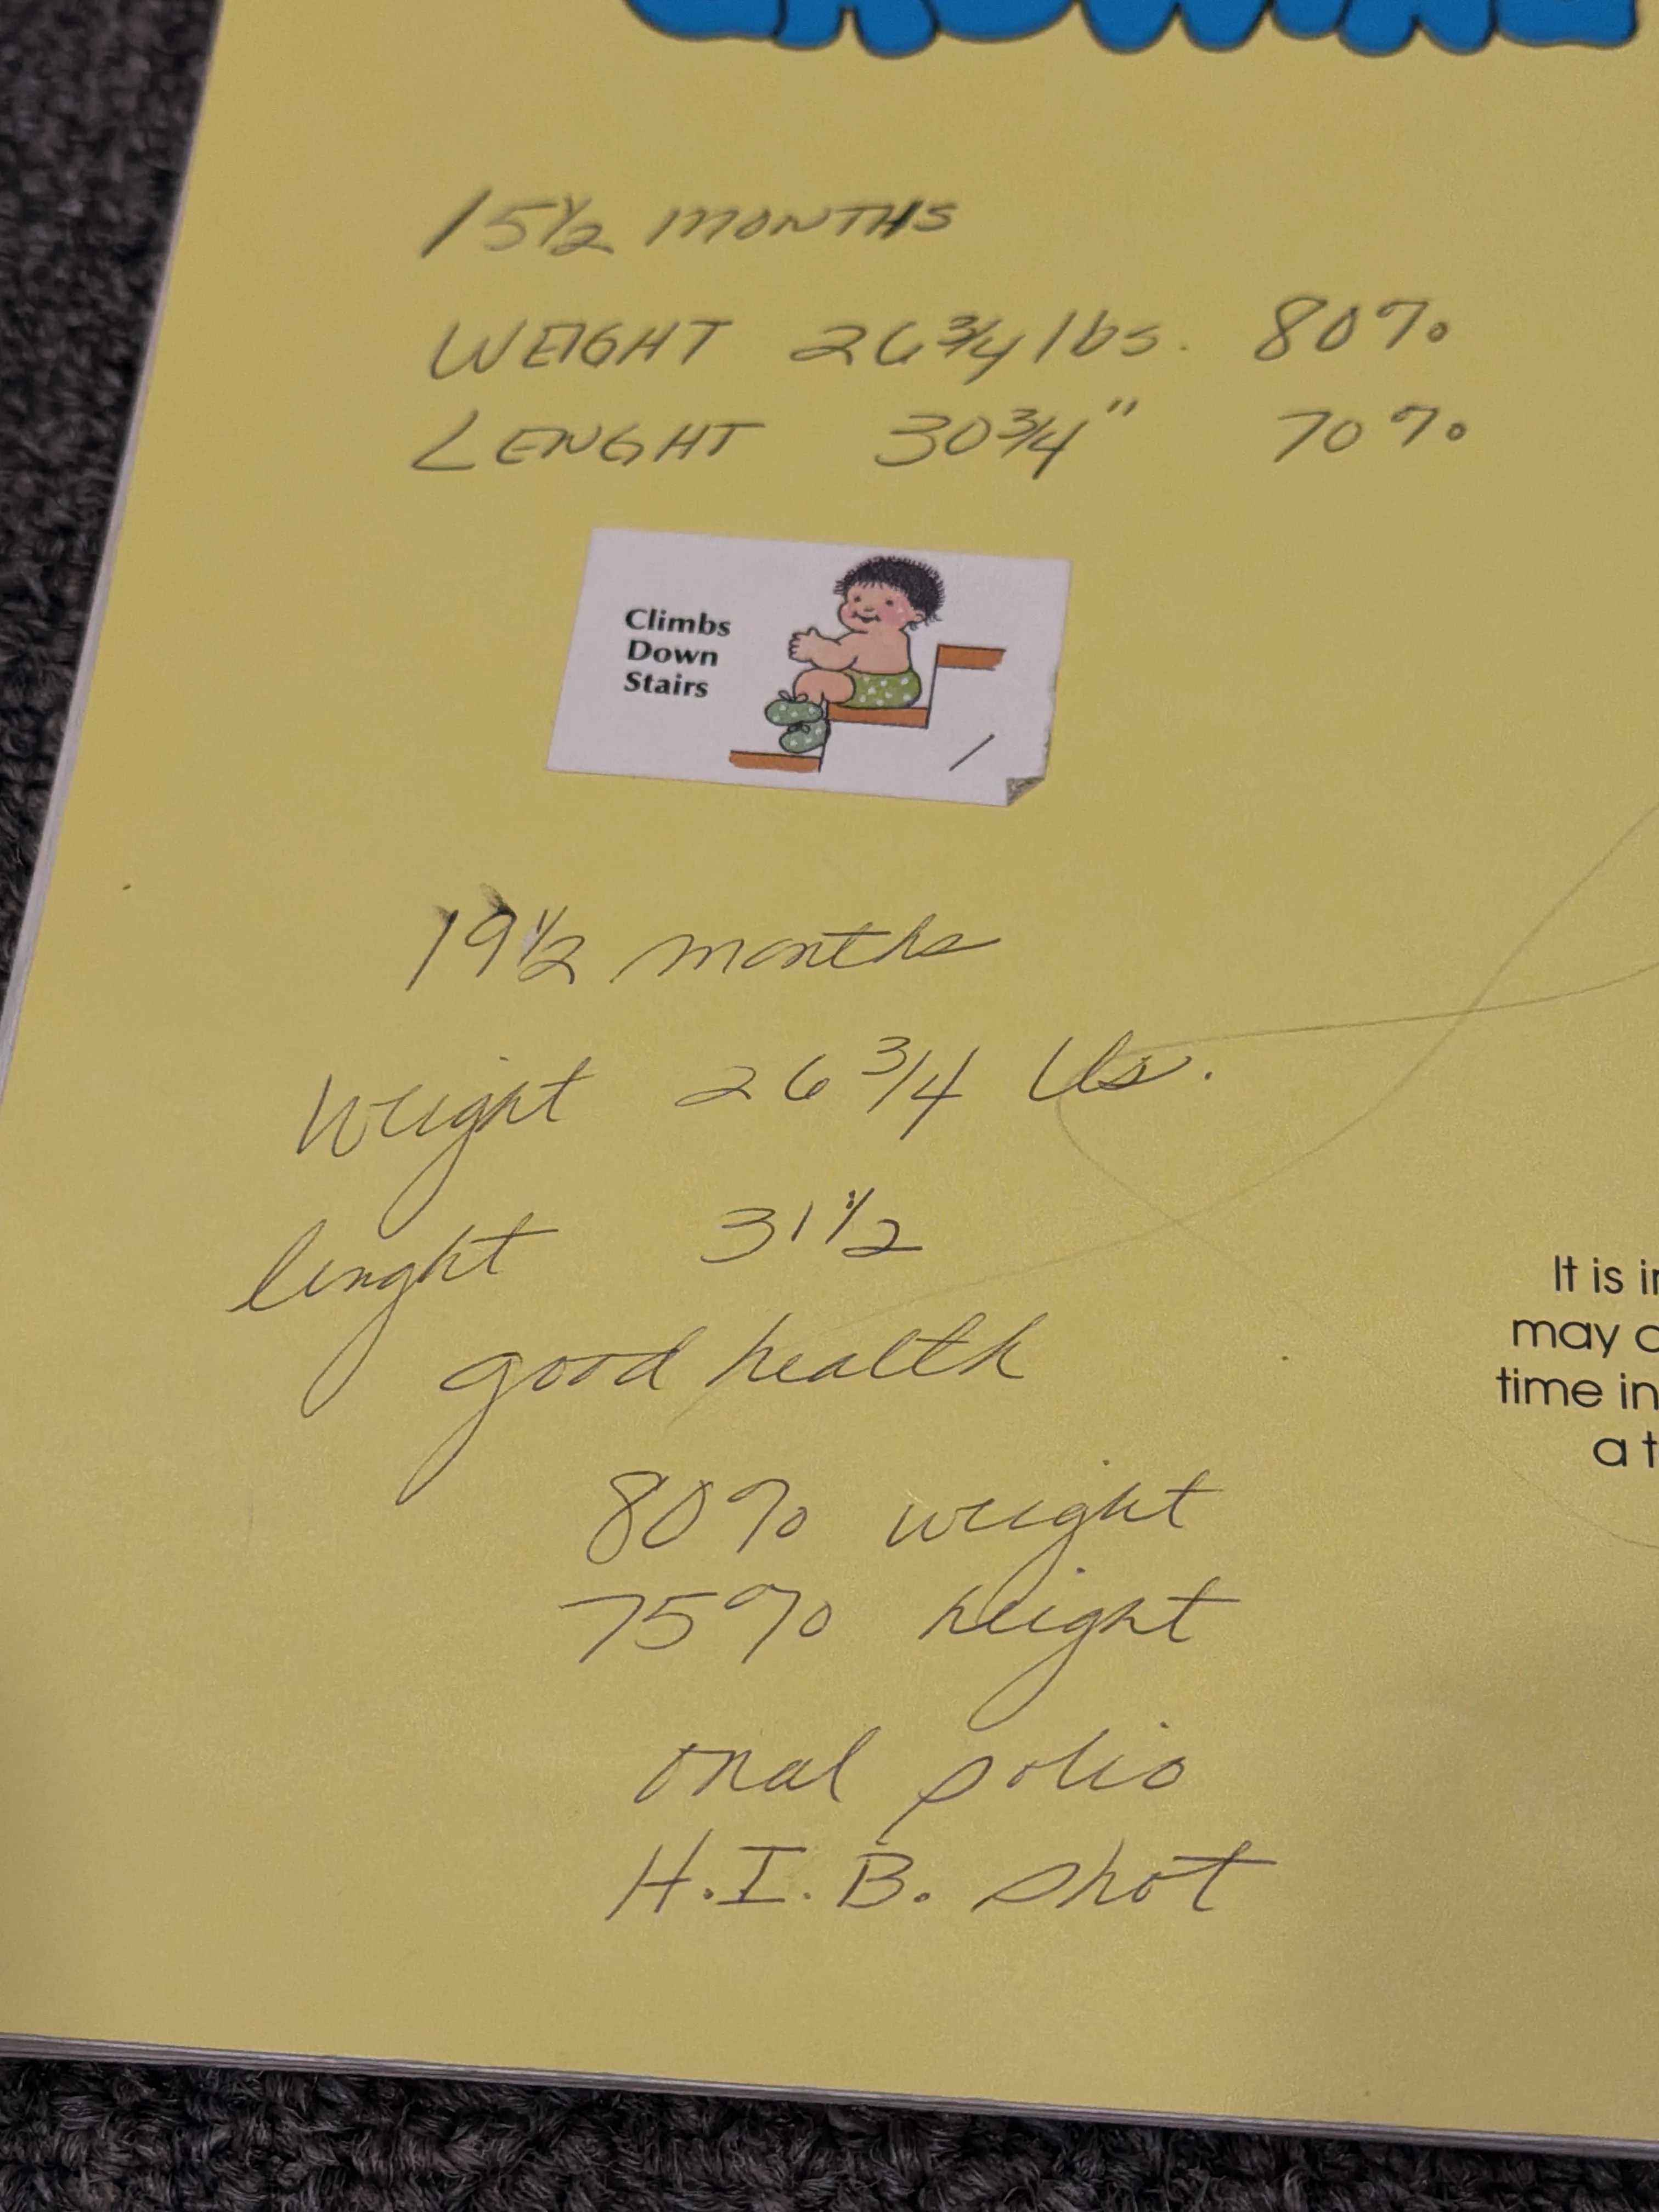 GROWING
15½ MONTHS
WEIGHT 26¾ lbs. 80%
LENGHT 30¾" 70%
Climbs
Down
Stairs
19½ months
Weight 26 3/4 lbs.
lenght 31½
good health
80% weight
75% height
oral polio
H.I.B. shot
It is
may
time in
a